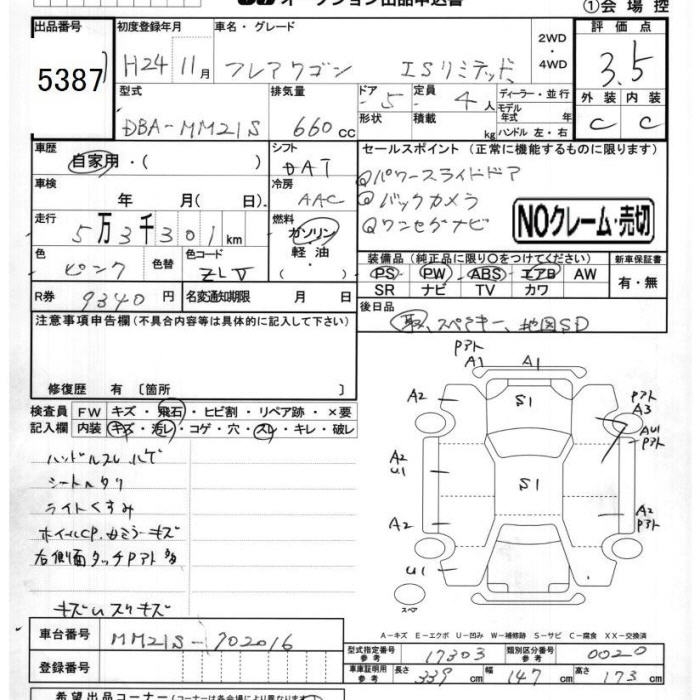 オークション出品申込書
①会場控
出品番号
5387
初度登録年月
H24年11月
車名・グレード
フレアワゴン ISリミテッド
2WD・4WD
評価点
3.5
外装 内装
C C
型式
DBA-MM21S
排気量
660cc
ドア 5
形状
定員 4人
積載 kg
ディーラー・並行
モデル年式 年
ハンドル 左・右
車歴
自家用・( )
シフト
DAT
車検
年 月( 日)
冷房
AAC
走行
5万3千301km
燃料
ガソリン・軽油・( )
色
ピンク
色替
色コード
ZLV
R券 9340円
名変通知期限 月 日
セールスポイント(正常に機能するものに限ります)
パワースライドドア
バックカメラ
ワンセグナビ
NOクレーム・売切
装備品(純正品に限り○をつけてください)
PS PW ABS エアB AW
SR ナビ TV カワ
新車保証書
有・無
後日品
取、スペアキー、地図SD
注意事項申告欄(不具合内容等は具体的に記入して下さい)
修復歴 有 [箇所 ]
検査員記入欄
FW キズ・飛石・ヒビ割・リペア跡・×要
内装 キズ・汚レ・コゲ・穴・スレ・キレ・破レ
ハンドルスレハゲ
シートヘタリ
ライトくすみ
右側面タッチPアト多
P アト
A1
A1
A2
S1
Pアト
A3
AU1
Pアト
A2
U1
S1
A2
A2
Pアト
U1
スペア
A-キズ E-エクボ U-凹み W-補修跡 S-サビ C-腐食 XX-交換済
車台番号
MM21S-702016
登録番号
型式指定番号 参考
17303
類別区分番号 参考
0020
車車証明用 参考
長さ 339cm
幅 147cm
高さ 173cm
希望出品コーナー